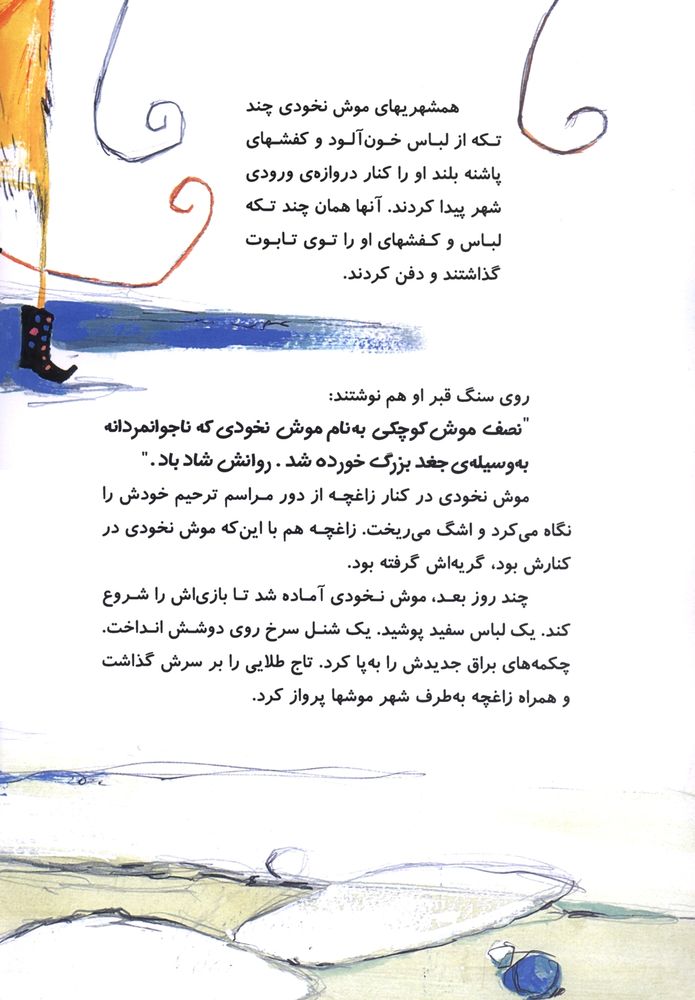 همشهریهای موش نخودی چند
تکه از لباس خون‌آلود و کفشهای
پاشنه بلند او را کنار دروازه‌ی ورودی
شهر پیدا کردند. آنها همان چند تکه
لباس و کفشهای او را توی تابوت
گذاشتند و دفن کردند.
روی سنگ قبر او هم نوشتند:
"نصف موش کوچکی به‌نام موش نخودی که ناجوانمردانه
به‌وسیله‌ی جغد بزرگ خورده شد. روانش شاد باد."
موش نخودی در کنار زاغچه از دور مراسم ترحیم خودش را
نگاه می‌کرد و اشگ می‌ریخت. زاغچه هم با این‌که موش نخودی در
کنارش بود، گریه‌اش گرفته بود.
چند روز بعد، موش نخودی آماده شد تا بازی‌اش را شروع
کند. یک لباس سفید پوشید. یک شنل سرخ روی دوشش انداخت.
چکمه‌های براق جدیدش را به‌پا کرد. تاج طلایی را بر سرش گذاشت
و همراه زاغچه به‌طرف شهر موشها پرواز کرد.